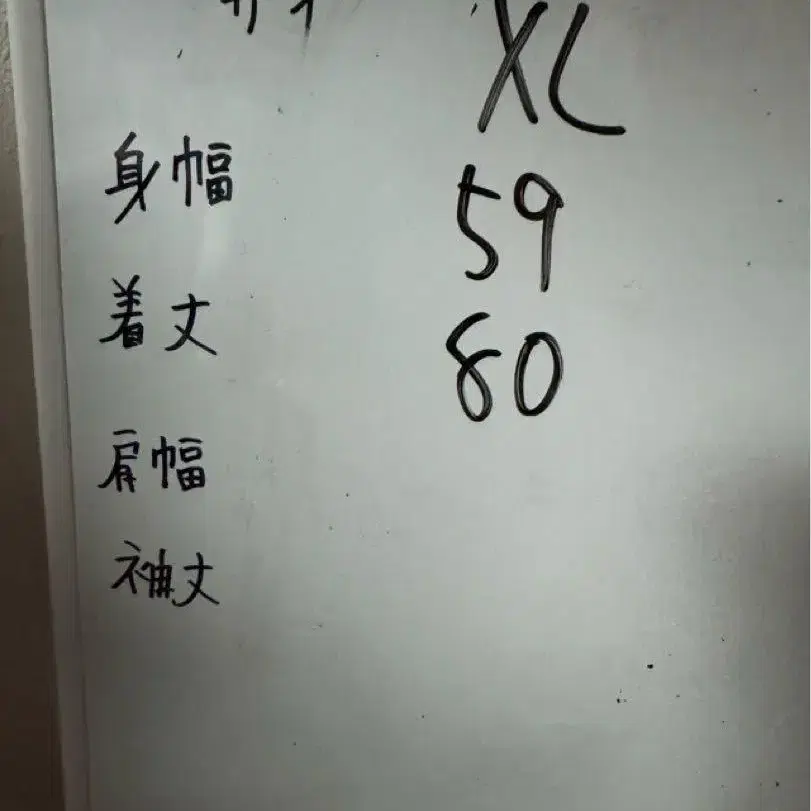 XL
身幅 59
着丈 80
肩幅
袖丈